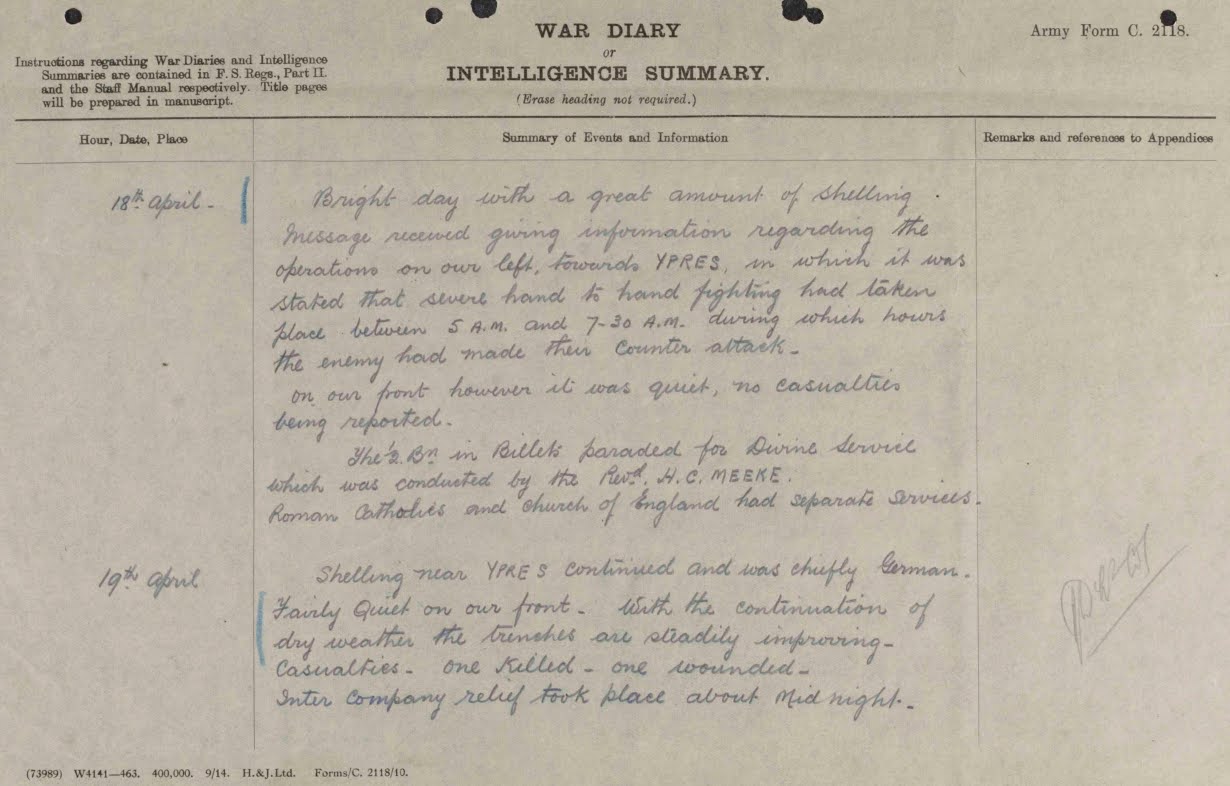 WAR DIARY
or
INTELLIGENCE SUMMARY.
(Erase heading not required.)
Army Form C. 2118.
Instructions regarding War Diaries and Intelligence
Summaries are contained in F. S. Regs., Part II.
and the Staff Manual respectively. Title pages
will be prepared in manuscript.
Hour, Date, Place
Summary of Events and Information
Remarks and references to Appendices
18th April -
Bright day with a great amount of shelling.
Message received giving information regarding the
operations on our left, towards YPRES, in which it was
stated that severe hand to hand fighting had taken
place between 5 A.M. and 7-30 A.M. during which hours
the enemy had made their counter attack -
on our front however it was quiet, no casualties
being reported.
The ½ Bn in Billets paraded for Divine Service
which was conducted by the Revd. H.C. MEEKE.
Roman Catholics and Church of England had separate services.
19th April
Shelling near YPRES continued and was chiefly German.
Fairly Quiet on our front - With the continuation of
dry weather the trenches are steadily improving -
Casualties - One Killed - one wounded -
Inter Company relief took place about Mid night -
(73989) W4141—463. 400,000. 9/14. H.&J.Ltd. Forms/C. 2118/10.